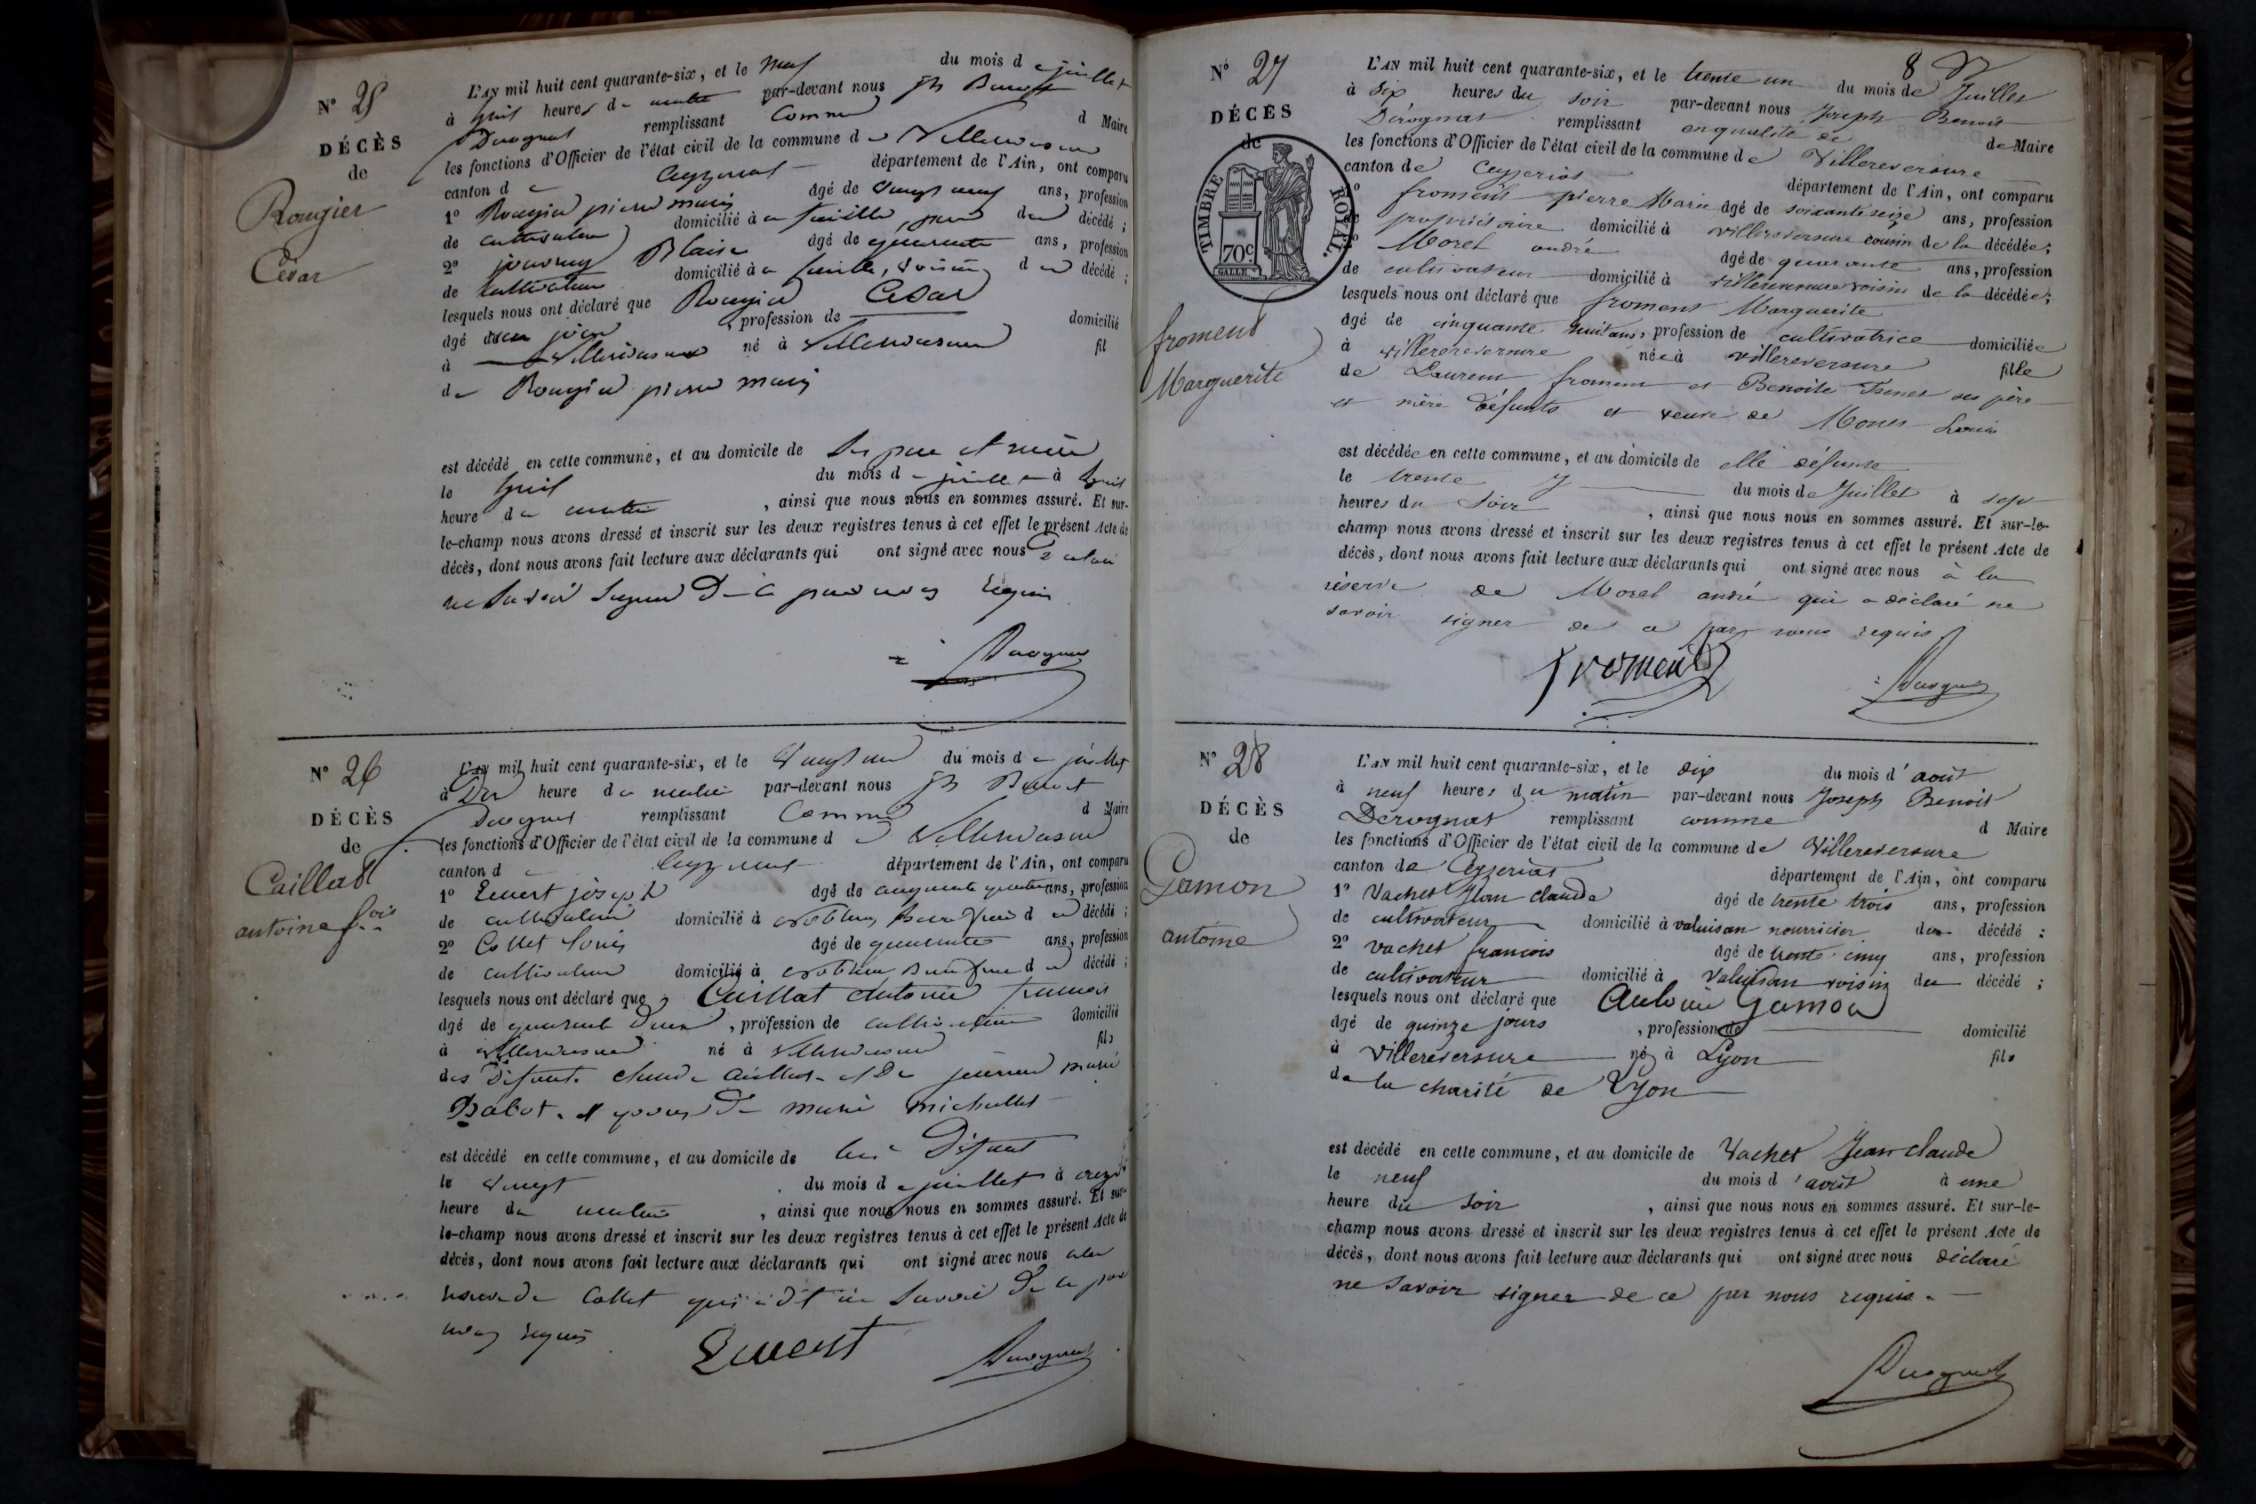 N° 25
DÉCÈS
de
Rougier
César
L'AN mil huit cent quarante-six, et le neuf du mois de juillet
à huit heures du matin par-devant nous Jh Benoit
Dérognat remplissant comme d Maire
les fonctions d'Officier de l'état civil de la commune de Villereversure
canton de Ceyzeriat département de l'Ain, ont comparu
1° Rougier pierre marie âgé de vingt neuf ans, profession
de cultivateur domicilié à père du décédé ;
2° Blaise âgé de quarante ans, profession
de cultivateur domicilié à voisin du décédé ;
lesquels nous ont déclaré que Rougier César
âgé jour , profession de domicilié
à Villereversure né à Villereversure fil
de Rougier pierre marie
est décédé en cette commune, et au domicile de ses père et mère
le huit du mois de juillet à huit
heure du matin , ainsi que nous nous en sommes assuré. Et sur-
le-champ nous avons dressé et inscrit sur les deux registres tenus à cet effet le présent Acte de
décès, dont nous avons fait lecture aux déclarants qui ont signé avec nous
ne savoir signer de ce par nous requis
Dérognat
N° 26
DÉCÈS
de
Caillat
antoine fois
L'AN mil huit cent quarante-six, et le vingt un du mois de juillet
à Dix heure du matin par-devant nous Jh Benoit
Dérognat remplissant comme d Maire
les fonctions d'Officier de l'état civil de la commune de Villereversure
canton de Ceyzeriat département de l'Ain, ont comparu
1° Euvert joseph âgé de cinquante quatre ans, profession
de cultivateur domicilié à Beau frère du décédé ;
2° Collet Louis âgé de quarante ans, profession
de cultivateur domicilié à Beau frère du décédé ;
lesquels nous ont déclaré que Caillat Antoine francois
âgé de quarante Deux , profession de cultivateur domicilié
à Villereversure né à Villereversure fils
des Défunts claude Caillat et De jeanne marie
Babot et epoux De marie michallet
est décédé en cette commune, et au domicile de lui Défunt
le vingt du mois de juillet à onze
heure du matin , ainsi que nous nous en sommes assuré. Et sur-
le-champ nous avons dressé et inscrit sur les deux registres tenus à cet effet le présent Acte de
décès, dont nous avons fait lecture aux déclarants qui ont signé avec nous à la
réserve de Collet qui a dit ne savoir De ce par
nous requis
Euvert Dérognat
8
N° 27
DÉCÈS
de
TIMBRE ROYAL.
70c
froment
Marguerite
L'AN mil huit cent quarante-six, et le trente un du mois de Juillet
à six heures du soir par-devant nous Joseph Benoit
Dérognat remplissant en qualité de de Maire
les fonctions d'Officier de l'état civil de la commune de Villereversure
canton de Ceyzeriat département de l'Ain, ont comparu
1° froment pierre Marie âgé de soixante seize ans, profession
de propriétaire domicilié à villereversure cousin de la décédée ;
2° Morel andré âgé de quarante ans, profession
de cultivateur domicilié à villereversure voisin de la décédée ;
lesquels nous ont déclaré que froment Marguerite
âgé de cinquante huit ans, profession de cultivatrice domiciliée
à villereversure née à villereversure fille
de Laurent froment et Benoite ses père
et mère défunts et veuve de Louis
est décédée en cette commune, et au domicile de elle défunte
le trente du mois de Juillet à sept
heures du soir , ainsi que nous nous en sommes assuré. Et sur-le-
champ nous avons dressé et inscrit sur les deux registres tenus à cet effet le présent Acte de
décès, dont nous avons fait lecture aux déclarants qui ont signé avec nous à la
réserve de Morel andré qui a déclaré ne
savoir signer de ce par nous requis
froment Dérognat
N° 28
DÉCÈS
de
Gamon
antoine
L'AN mil huit cent quarante-six, et le dix du mois d'août
à neuf heures du matin par-devant nous Joseph Benoit
Dérognat remplissant comme d Maire
les fonctions d'Officier de l'état civil de la commune de Villereversure
canton de Ceyzeriat département de l'Ain, ont comparu
1° Vachet Jean claude âgé de trente trois ans, profession
de cultivateur domicilié à valuisan nourricier du décédé ;
2° vachet francois âgé de trente cinq ans, profession
de cultivateur domicilié à valuisan voisin du décédé ;
lesquels nous ont déclaré que Antoine Gamon
âgé de quinze jours , profession de domicilié
à villereversure né à Lyon fils
de la charité de Lyon
est décédé en cette commune, et au domicile de Vachet Jean claude
le neuf du mois d'août à une
heure du soir , ainsi que nous nous en sommes assuré. Et sur-le-
champ nous avons dressé et inscrit sur les deux registres tenus à cet effet le présent Acte de
décès, dont nous avons fait lecture aux déclarants qui ont signé avec nous déclaré
ne savoir signer de ce par nous requis.
Dérognat